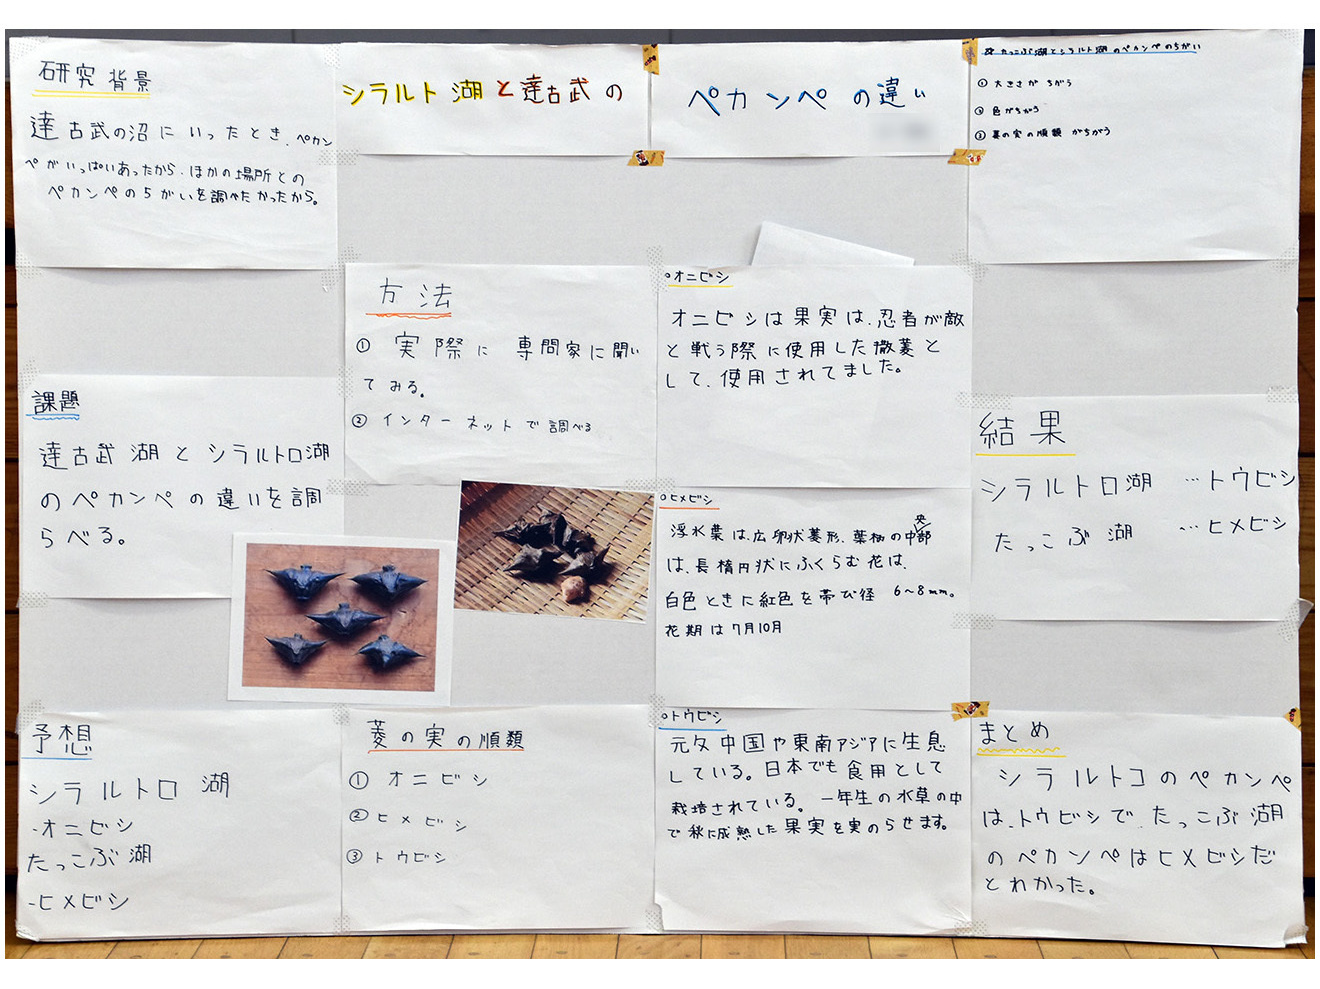 シラルト湖と達古武の
ペカンペの違い
研究背景
達古武の沼にいったとき、ペカン
ペがいっぱいあったから、ほかの場所との
ペカンペのちがいを調べたかったから。
課題
達古武湖とシラルトロ湖
のペカンペの違いを調
らべる。
予想
シラルトロ湖
-オニビシ
たっこぶ湖
-ヒメビシ
方法
① 実際に専門家に聞い
てみる。
② インターネットで調べる
菱の実の順類
① オニビシ
② ヒメビシ
③ トウビシ
○オニビシ
オニビシは果実は、忍者が敵
と戦う際に使用した撒菱と
して、使用されてました。
○ヒメビシ
浮水葉は、広卵状菱形、葉柄の中央部
は、長楕円状にふくらむ花は、
白色ときに紅色を帯び径 6~8mm。
花期は7月10月
○トウビシ
元々中国や東南アジアに生息
している。日本でも食用として
栽培されている。一年生の水草の中
で秋に成熟した果実を実のらせます。
☆たっこぶ湖とシラルトロ湖のペカンペのちがい
① 大きさがちがう
② 色がちがう
③ 菱の実の順類がちがう
結果
シラルトロ湖 …トウビシ
たっこぶ湖 …ヒメビシ
まとめ
シラルトコのペカンペ
は、トウビシで、たっこぶ湖
のペカンペはヒメビシだ
とわかった。